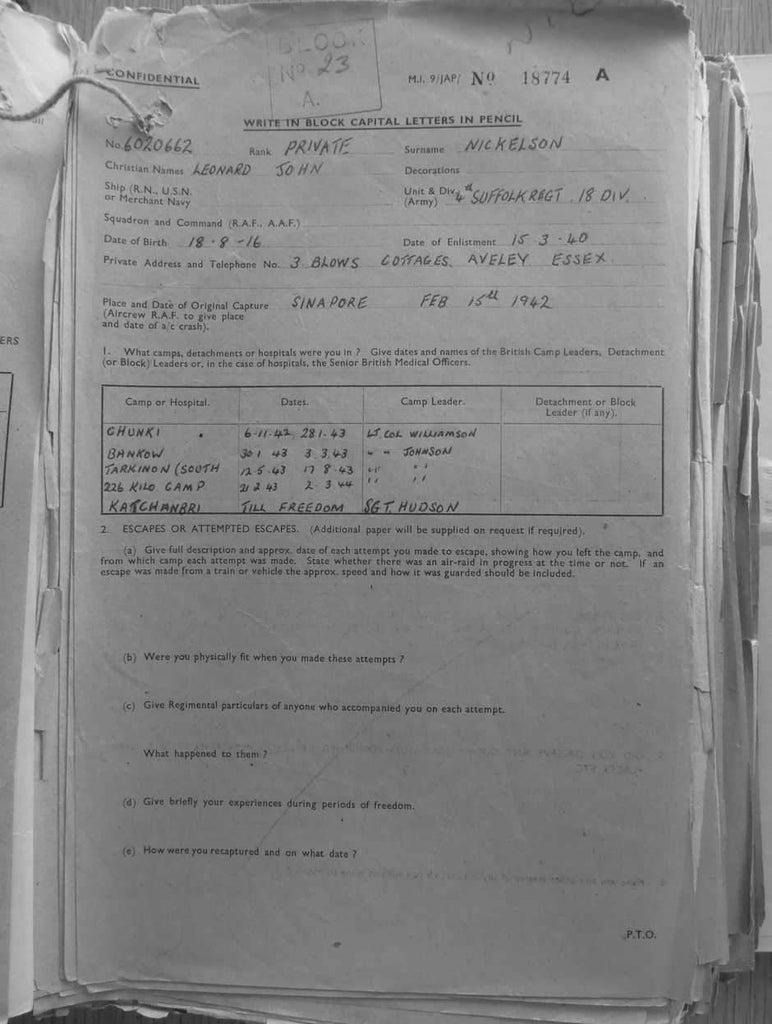 BLOCK
No. 23
A.
CONFIDENTIAL
M.I. 9/JAP/ No 18774 A
WRITE IN BLOCK CAPITAL LETTERS IN PENCIL
No. 6020662 Rank PRIVATE Surname NICKELSON
Christian Names LEONARD JOHN Decorations
Ship (R.N., U.S.N. or Merchant Navy
Unit & Div. (Army) 4th SUFFOLK REGT. 18 DIV.
Squadron and Command (R.A.F., A.A.F.)
Date of Birth 18-8-16 Date of Enlistment 15 3-40
Private Address and Telephone No. 3 BLOWS COTTAGES. AVELEY ESSEX.
Place and Date of Original Capture SINAPORE FEB 15th 1942
(Aircrew R.A.F. to give place
and date of a/c crash).
1. What camps, detachments or hospitals were you in ? Give dates and names of the British Camp Leaders, Detachment
(or Block) Leaders or, in the case of hospitals, the Senior British Medical Officers.
Camp or Hospital. Dates. Camp Leader. Detachment or Block
Leader (if any).
CHUNKI 6-11-42, 28 1-43 LT. COL WILLIAMSON
BANKOW 30 1 43 3 3.43 " " JOHNSON
TARKINON (SOUTH 12-5-43 17 8-43 " " " "
226 KILO CAMP 21 2 43 2-3 44 " " " "
KATCHANBRI TILL FREEDOM SGT. HUDSON
2. ESCAPES OR ATTEMPTED ESCAPES. (Additional paper will be supplied on request if required).
(a) Give full description and approx. date of each attempt you made to escape, showing how you left the camp, and
from which camp each attempt was made. State whether there was an air-raid in progress at the time or not. If an
escape was made from a train or vehicle the approx. speed and how it was guarded should be included.
(b) Were you physically fit when you made these attempts ?
(c) Give Regimental particulars of anyone who accompanied you on each attempt.
What happened to them ?
(d) Give briefly your experiences during periods of freedom.
(e) How were you recaptured and on what date ?
P.T.O.
ERS